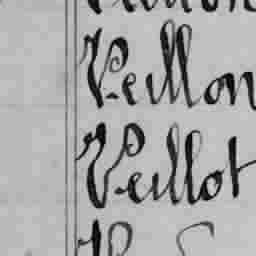 Veillon
Veillot